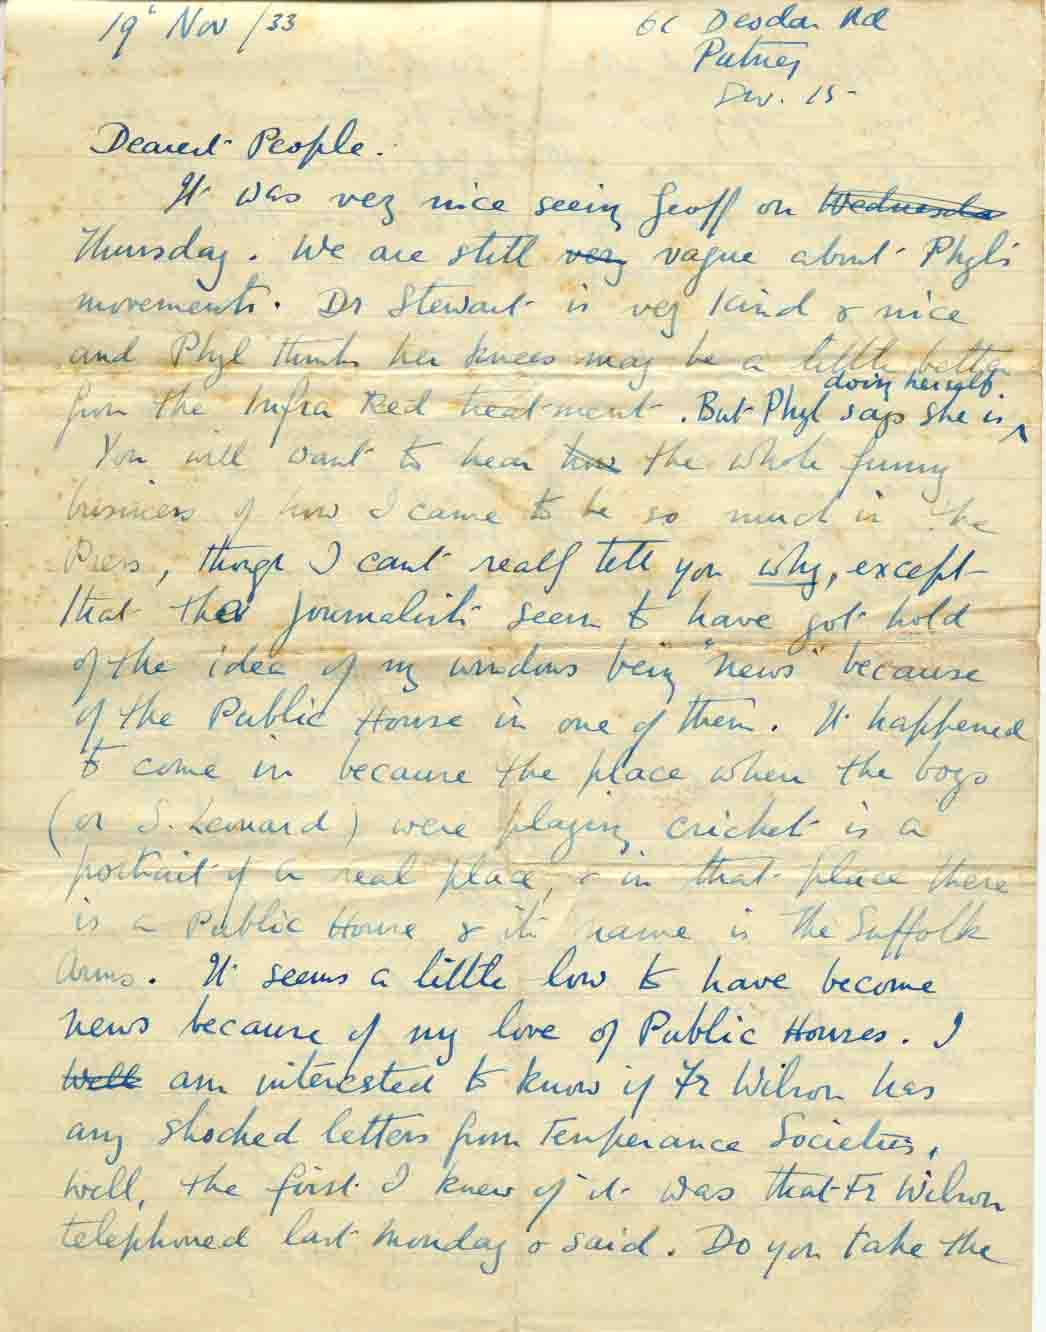 19th Nov /33
61 Deodar Rd
Putney
S.W. 15
Dearest People.
It was very nice seeing Geoff on Wednesda
Thursday. We are still very vague about Phyl's
movements. Dr Stewart is very kind & nice
and Phyl thinks her knees may be a little better
from the Infra Red treatment. But Phyl says she is ^ doing herself.
You will want to hear how the whole funny
business of how I came to be so much in the
Press, though I cant really tell you why, except
that the Journalists seem to have got hold
of the idea of my windows being "news" because
of the Public House in one of them. It happened
to come in because the place when the boys
(or S. Leonard) were playing cricket is a
portrait of a real place, & in that place there
is a Public House & its name is the Suffolk
Arms. It seems a little low to have become
news because of my love of Public Houses. I
Well am interested to know if Fr Wilson has
any shocked letters from Temperance Societies.
Well, the first I knew of it was that Fr Wilson
telephoned last Monday & said. Do you take the